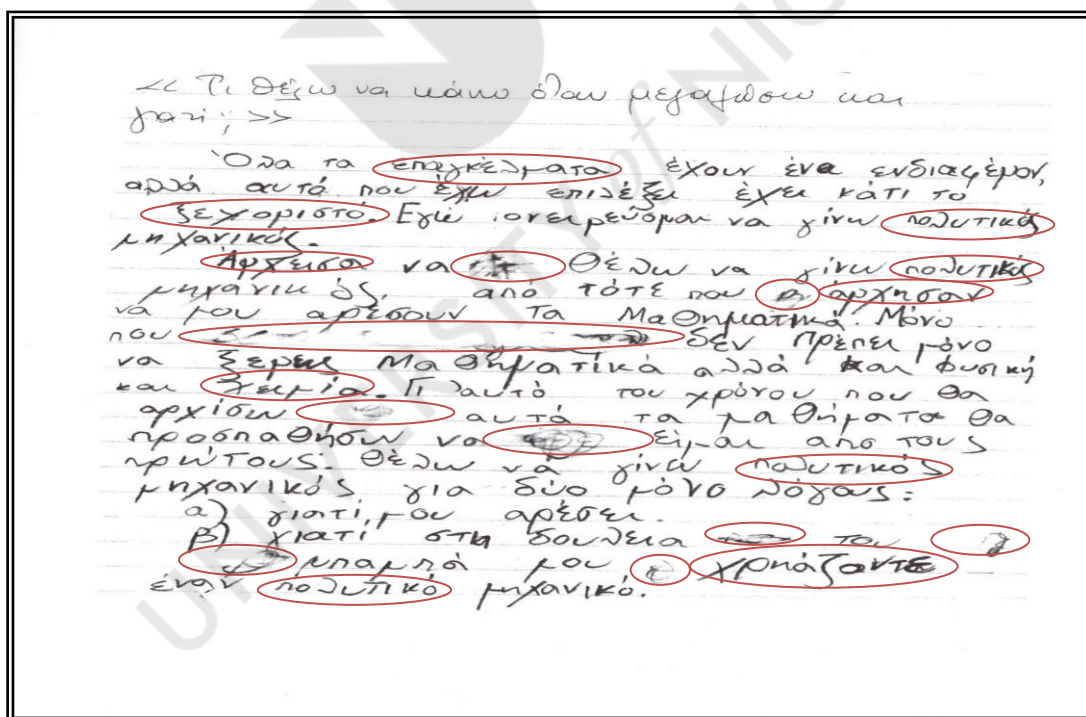 << Τι θέλω να κάνω όταν μεγαλώσω και
γιατί; >>
Όλα τα επαγκέλματα έχουν ένα ενδιαφέρον,
αλλά αυτό που έχω επιλέξει έχει κάτι το
ξεχοριστό. Εγώ ονειρεύομαι να γίνω πολυτικός
μηχανικός.
Άρχεισα να θέλω να γίνω πολυτικός
μηχανικός, από τότε που άρχησαν
να μου αρέσουν τα Μαθηματικά. Μόνο
που δεν πρέπει μόνο
να ξερεις Μαθηματικά αλλά και φυσική
και Χειμία. Γι'αυτό του χρόνου που θα
αρχίσω αυτά τα μαθήματα θα
προσπαθήσω να είμαι απο τους
πρώτους. Θέλω νά γίνω πολυτικός
μηχανικός για δύο μόνο λόγους:
α) γιατί μου αρέσει.
β) γιατί στη δουλεια του
μπαμπά μου χρηάζαντε
έναν πολυτικό μηχανικό.
UNIVERSITY of NIC